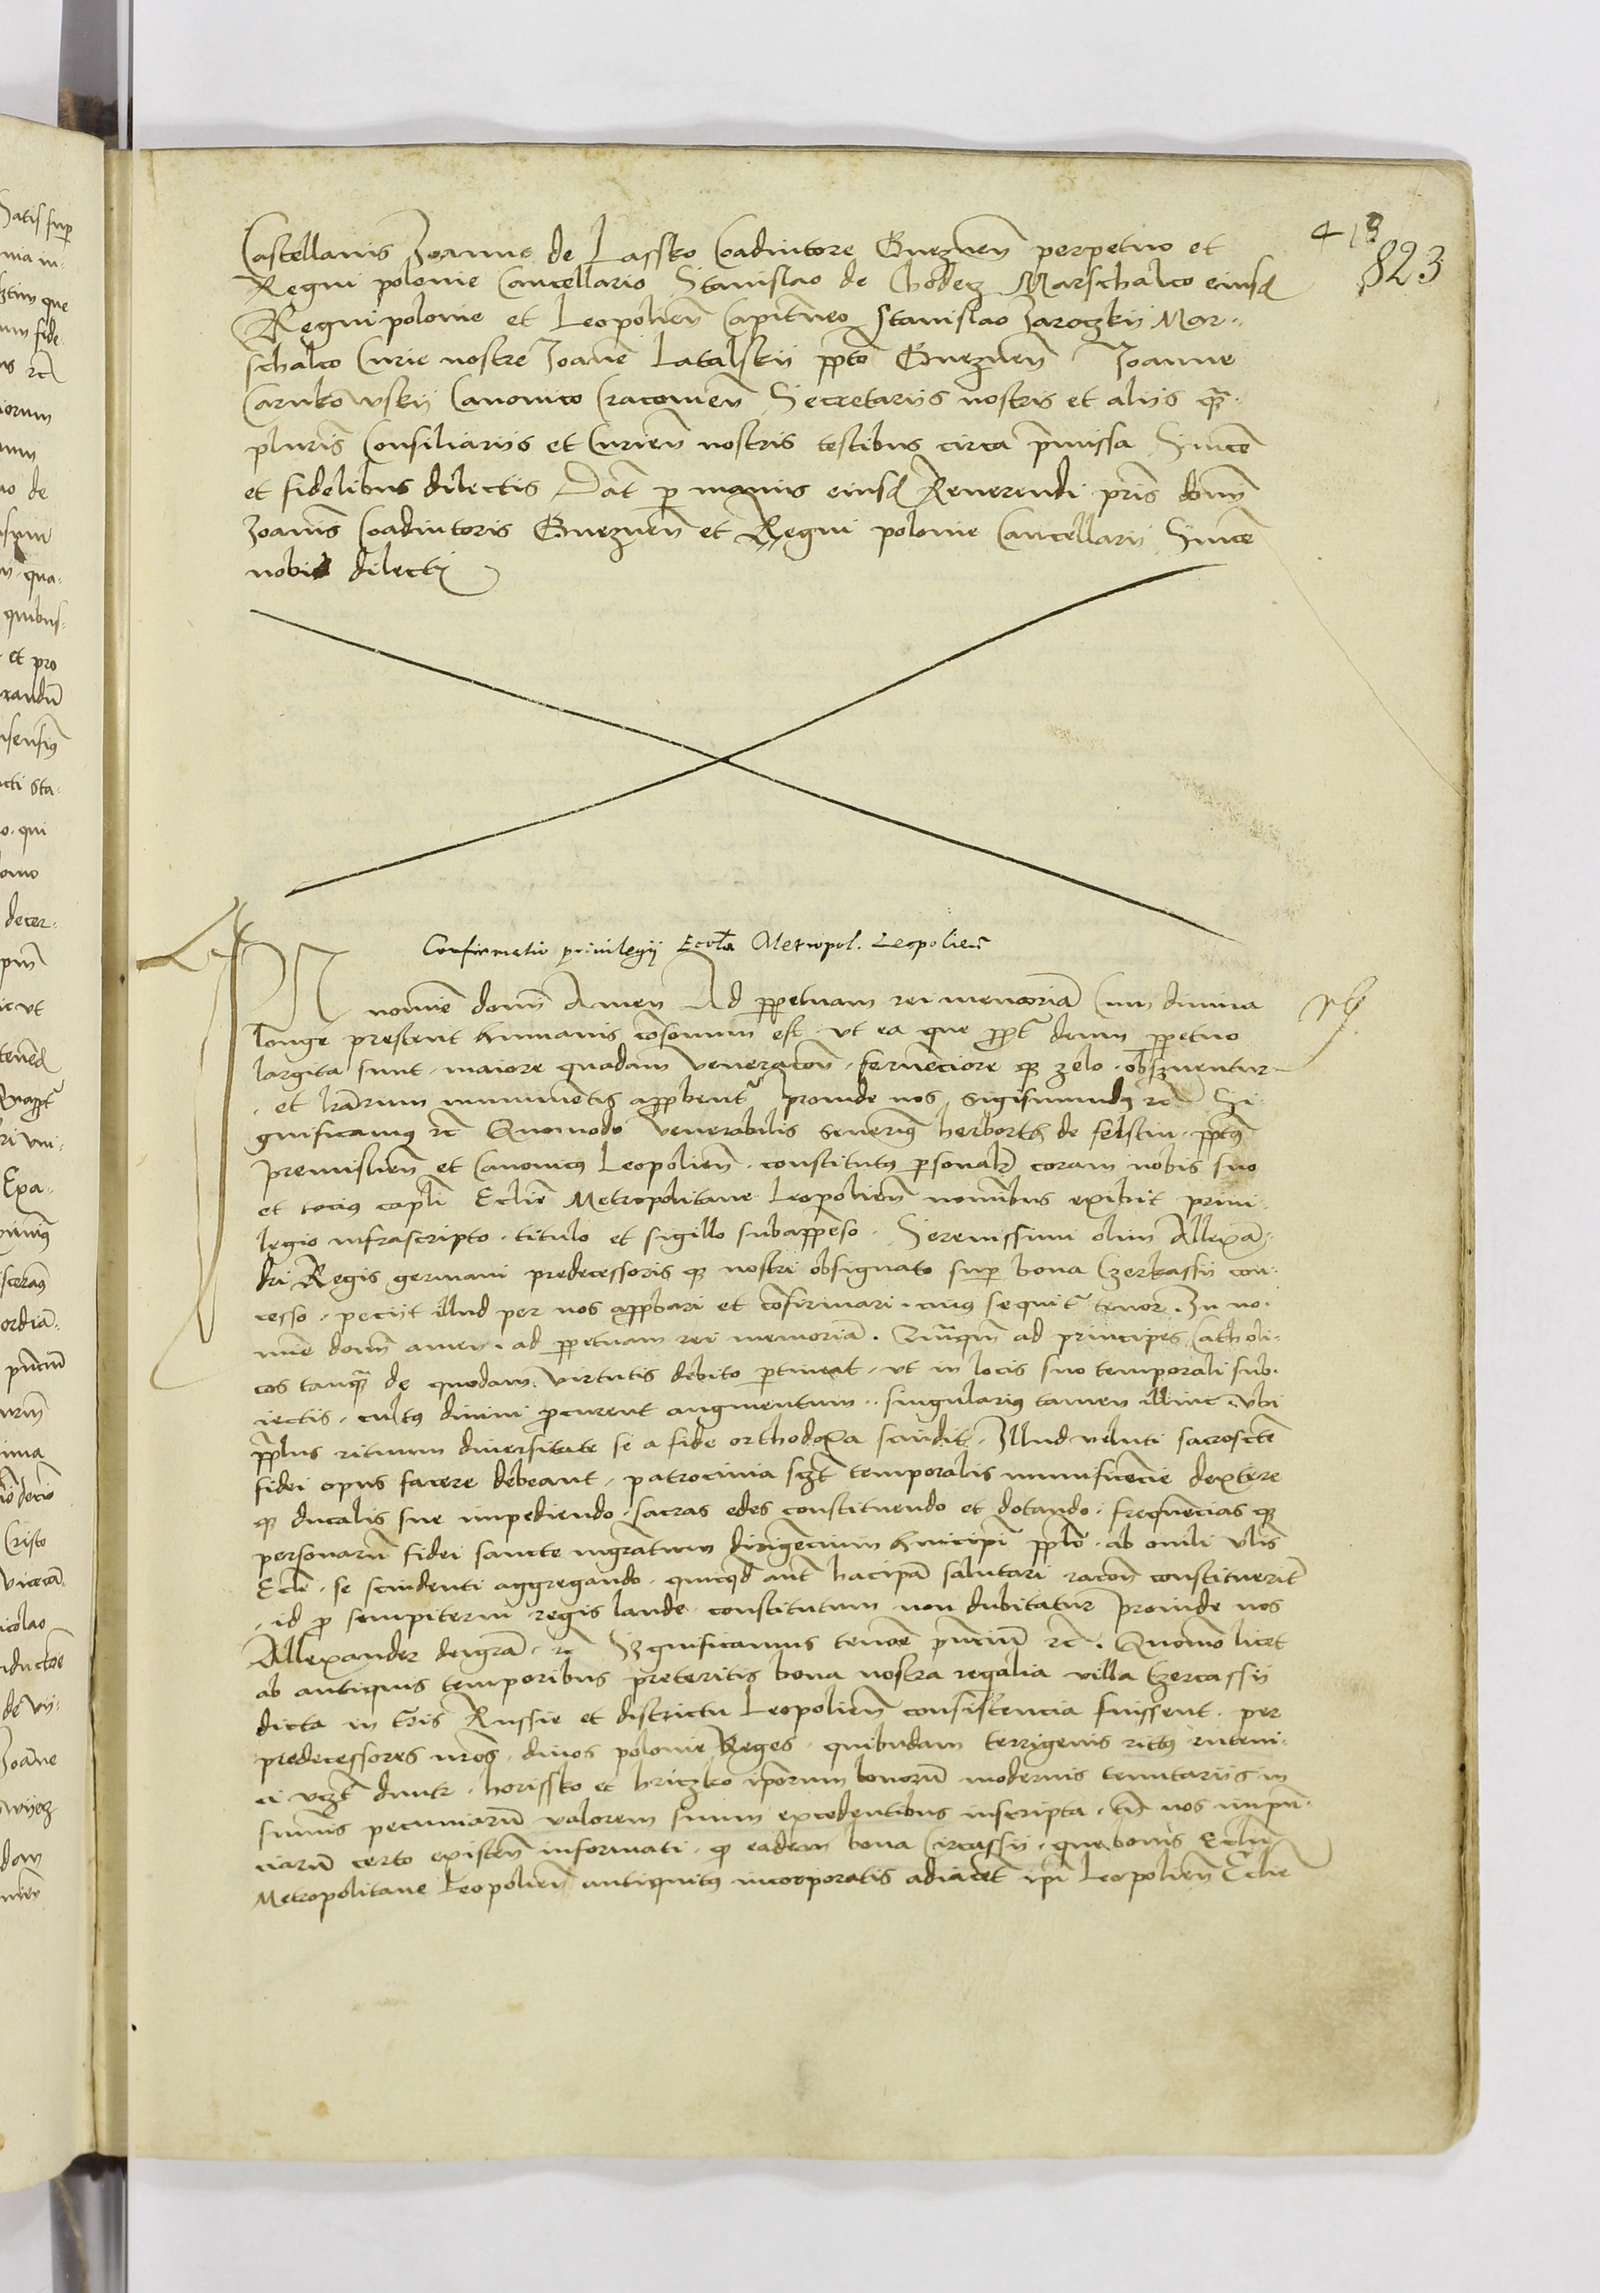 413
823
Castellanis Joanne de Lassko Coadiutore Gneznen̄ perpetuo et
Regni polonie Cancellario Stanislao de Chodecz Marschalco eiusd
Regni polonie et Leopolien̄ Capitaneo Stanislao Jaroczkii Mar-
schalco Curie nostre Joane Latalskii pp̄to Gneznen̄ Joanne
Carnkowskii Canonico Cracouien̄ Secretariis nostris et aliis q̄
pluris̄ Consiliariis et Curien̄ nostris testibus circa p̄missa Sincē
et fidelibus dilectis Dat̄ p manus eiusd Reuerendi pr̄is domī
Joanīs Coadiutoris Gneznen̄ et Regni polonie Cancellarii Sincē
nobis dilecti
Confirmatio priuilegii Eccl̄a Metropol. Leopolien̄
IN nomīe domī Amen Ad ppetuam rei memoriā Cum diuina
longe prestent humanis cōsonum est ut ea que ppt̄ deum ppetuo
largita sunt . maiore quadam veneracon̄ . feruēciore q zelo . obsruentur
. et lr̄arum munimentis appbent̄ Proinde nos Sigismundus rc̄ Si-
gnificamus rc̄ Quomodo venerabilis Seuerinus herborth de felstin . pp̄tus
Premislien̄ et Canonicus Leopolien̄ . constitutus psonalr̄ coram nobis suo
et tocius capl̄i Eccl̄ie Metropolitane Leopolien̄ nomībus exibit priui-
legio infrascripto . titulo et sigillo subappēso . Serenissimi olim Allexā-
dri Regis germani predecessoris q nostri obsignato sup bona Czerkassii con-
cesso . peciit illud per nos appbari et cōfirmari . cuius sequit̄ tenor . In no-
mīe domī amen . ad ppetuam rei memoriā . Quāqm̄ ad principes Catholi-
cos tanq̄ de quodam virtutis debito ptineat . ut in locis suo temporali sub-
iectis . cultus diuini pcurent augmentum . singularius tamen illinc . vbi
pp̄lus rituum diuersitate se a fide orthodoxa scindit . Illud veluti sacroscte
fidei opus facere debeant . patrocinia sczt̄ temporalis munificencie dextere
q ducalis sue impediendo . sacras edes constituendo et dotando . frequēcias q
personarū fidei sancte
Eccl̄e . se scindenti aggregando . quicqd aut̄ salutari racon̄ constituerit̄
. id p sempiterni regis laude constitutum non dubitatur Proinde nos
Allexander dei gr̄a . rc̄ Significamus tenore p̄ncium rc̄ . Quomō licet
ab antiquis temporibus preteritis bona nostra regalia villa Czercassii
dicta in tris Russie et districtu Leopolien̄ consistencia fuissent . per
predecessores nr̄os . diuos polonie Reges . quibusdam terrigenis ritus ruteni-
ci vczt̄ . horissko et hriczko ip̄orum bonorū modernis tenutariis in
summis pecuniarū valorem suum excedentibus inscripta . tn̄ nos
certo existen̄ informati . q eadem bona Circassii . que bonis Eccl̄ie
Metropolitane Leopolien̄ antiquitus incorporatis adiacet ip̄i Leopolien̄ Eccl̄ie